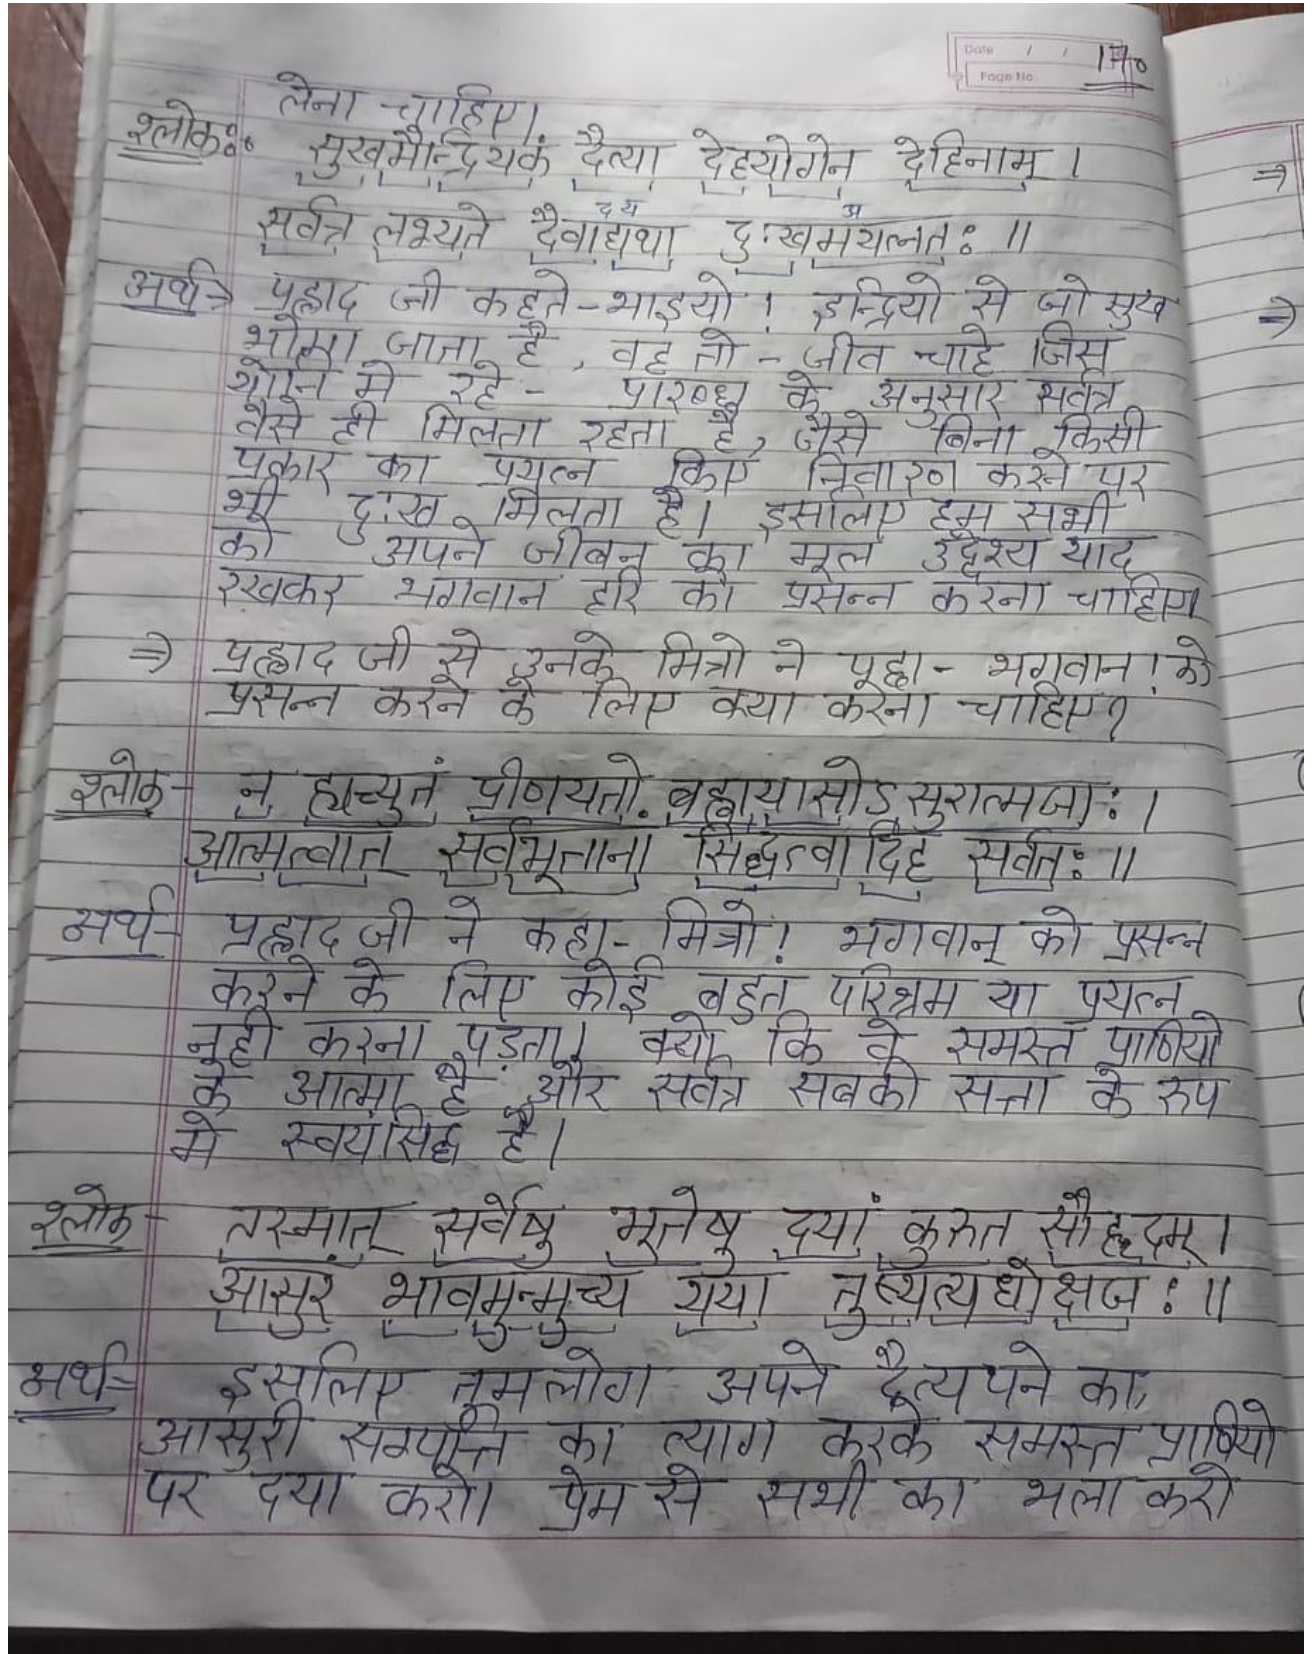 Date / / 170
Page No.
लेना चाहिए।
श्लोकः सुखमैन्द्रियकं दैत्या देहयोगेन देहिनाम् ।
द्य अ
सर्वत्र लभ्यते दैवाद्यथा दुःखमयत्नतः ॥
अर्थ→ प्रह्लाद जी कहते - भाइयो ! इन्द्रियो से जो सुख
भोगा जाता है, वह तो - जीव चाहे जिस
योनि मे रहे - प्रारब्ध के अनुसार सर्वत्र
वैसे ही मिलता रहता है, जैसे बिना किसी
प्रकार का प्रयत्न किए निवारण करने पर
भी दुःख मिलता है। इसलिए हम सभी
को अपने जीवन का मूल उद्देश्य याद
रखकर भगवान हरि को प्रसन्न करना चाहिए
⇒ प्रह्लाद जी से उनके मित्रो ने पूछा - भगवान ! को
प्रसन्न करने के लिए क्या करना चाहिए?
श्लोक - न ह्यच्युतं प्रीणयतो बह्वायासोऽसुरात्मजाः ।
आत्मत्वात् सर्वभूतानां सिद्धत्वादिह सर्वतः ॥
अर्थ - प्रह्लाद जी ने कहा - मित्रो ! भगवान् को प्रसन्न
करने के लिए कोई बहुत परिश्रम या प्रयत्न
नही करना पड़ता। क्यो कि वे समस्त प्राणियो
के आत्मा है और सर्वत्र सबकी सत्ता के रुप
मे स्वयंसिद्ध है।
श्लोक - तस्मात् सर्वेषु भूतेषु दयां कुरुत सौहृदम् ।
आसुरं भावमुन्मुच्य यया तुष्यत्यधोक्षजः ॥
अर्थ = इसलिए तुमलोग अपने दैत्यपने का,
आसुरी सम्पत्ति का त्याग करके समस्त प्राणियो
पर दया करो। प्रेम से सभी का भला करो